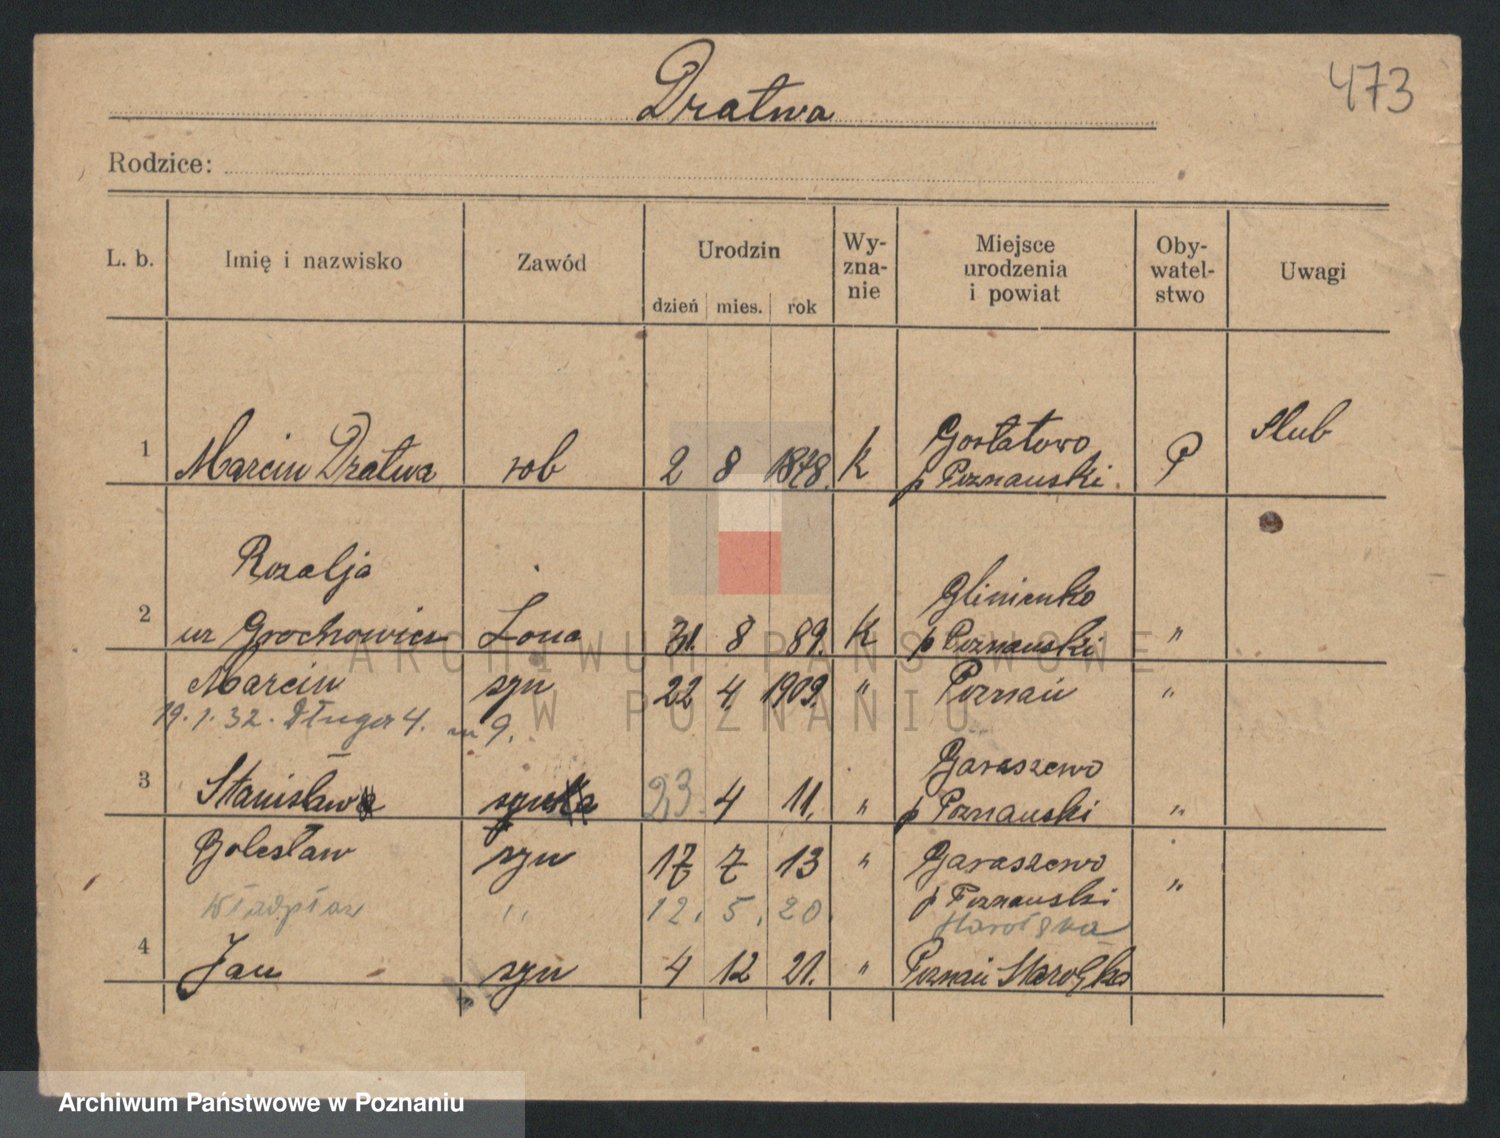 Dratwa
473
Rodzice:
L. b. Imię i nazwisko Zawód Urodzin dzień mies. rok Wy-zna-nie Miejsce urodzenia i powiat Oby-watel-stwo Uwagi
1 Marcin Dratwa rob 2 8 1878. K Gortatowo p Poznański. P Slub
Rozalja
2 ur Grochowicz żona 31. 8 89. K Glinienko p Poznański "
Marcin syn 22 4. 1909. " Poznań "
19. 1. 32. Długa 4. m 9.
3 Stanisław syn 23. 4 11. " Garaszewo p Poznański "
Bolesław syn 17 7 13 " Garaszewo p Poznański "
" 12. 5. 20 Starołęka
4 Jan syn 4 12 21. " Poznań Starołęka
ARCHIWUM PAŃSTWOWE
W POZNANIU
Archiwum Państwowe w Poznaniu